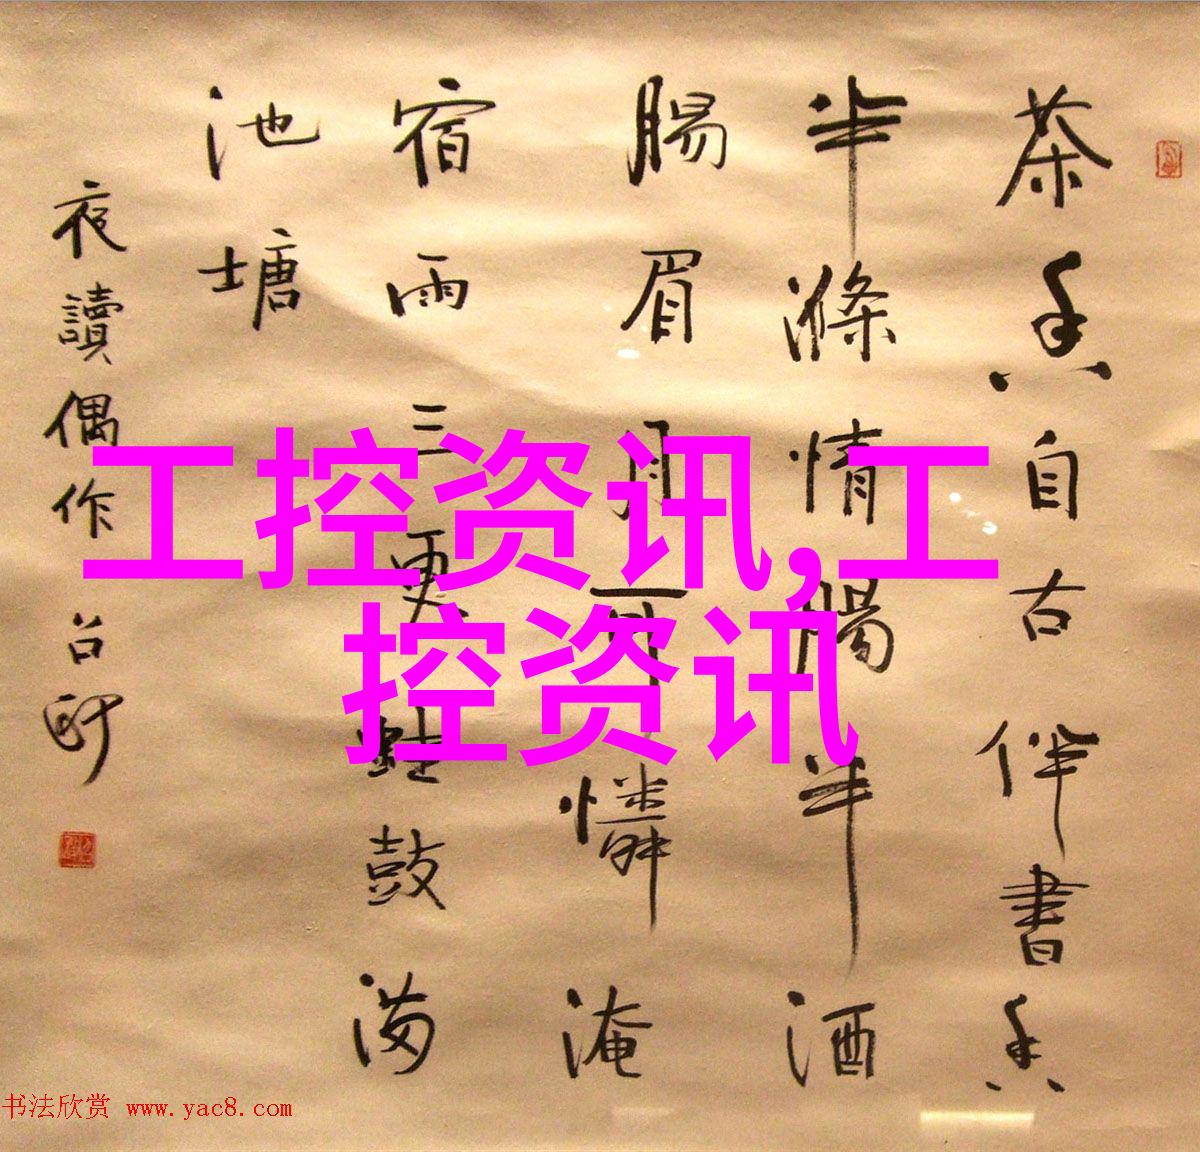 茶香自古伴書香
半滌情腸半酒
腸眉月可憐淹
宿雨三更蛙鼓满
池塘
夜讀偶作
工控资讯,工
控资讯
书法欣赏 www.yac8.com